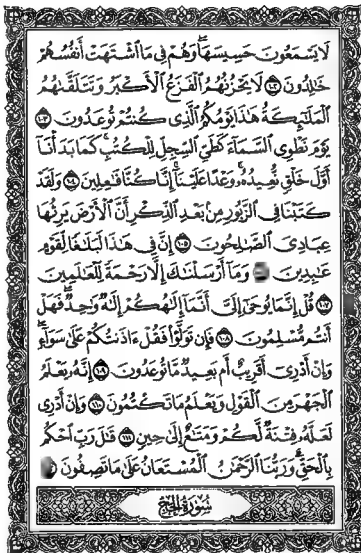 لَا يَسْمَعُونَ حَسِيسَهَا ۖ وَهُمْ فِى مَا ٱشْتَهَتْ أَنفُسُهُمْ
خَٰلِدُونَ ١٠٢ لَا يَحْزُنُهُمُ ٱلْفَزَعُ ٱلْأَكْبَرُ وَتَتَلَقَّىٰهُمُ
ٱلْمَلَٰٓئِكَةُ هَٰذَا يَوْمُكُمُ ٱلَّذِى كُنتُمْ تُوعَدُونَ ١٠٣
يَوْمَ نَطْوِى ٱلسَّمَآءَ كَطَىِّ ٱلسِّجِلِّ لِلْكُتُبِ ۚ كَمَا بَدَأْنَآ
أَوَّلَ خَلْقٍ نُّعِيدُهُۥ ۚ وَعْدًا عَلَيْنَآ ۚ إِنَّا كُنَّا فَٰعِلِينَ ١٠٤ وَلَقَدْ
كَتَبْنَا فِى ٱلزَّبُورِ مِنۢ بَعْدِ ٱلذِّكْرِ أَنَّ ٱلْأَرْضَ يَرِثُهَا
عِبَادِىَ ٱلصَّٰلِحُونَ ١٠٥ إِنَّ فِى هَٰذَا لَبَلَٰغًا لِّقَوْمٍ
عَٰبِدِينَ وَمَآ أَرْسَلْنَٰكَ إِلَّا رَحْمَةً لِّلْعَٰلَمِينَ
١٠٧ قُلْ إِنَّمَا يُوحَىٰٓ إِلَىَّ أَنَّمَآ إِلَٰهُكُمْ إِلَٰهٌ وَٰحِدٌ ۖ فَهَلْ
أَنتُم مُّسْلِمُونَ ١٠٨ فَإِن تَوَلَّوْا۟ فَقُلْ ءَاذَنتُكُمْ عَلَىٰ سَوَآءٍ ۖ
وَإِنْ أَدْرِىٓ أَقَرِيبٌ أَم بَعِيدٌ مَّا تُوعَدُونَ ١٠٩ إِنَّهُۥ يَعْلَمُ
ٱلْجَهْرَ مِنَ ٱلْقَوْلِ وَيَعْلَمُ مَا تَكْتُمُونَ ١١٠ وَإِنْ أَدْرِى
لَعَلَّهُۥ فِتْنَةٌ لَّكُمْ وَمَتَٰعٌ إِلَىٰ حِينٍ ١١١ قَٰلَ رَبِّ ٱحْكُم
بِٱلْحَقِّ ۗ وَرَبُّنَا ٱلرَّحْمَٰنُ ٱلْمُسْتَعَانُ عَلَىٰ مَا تَصِفُونَ
سُورَةُ الحَجِّ